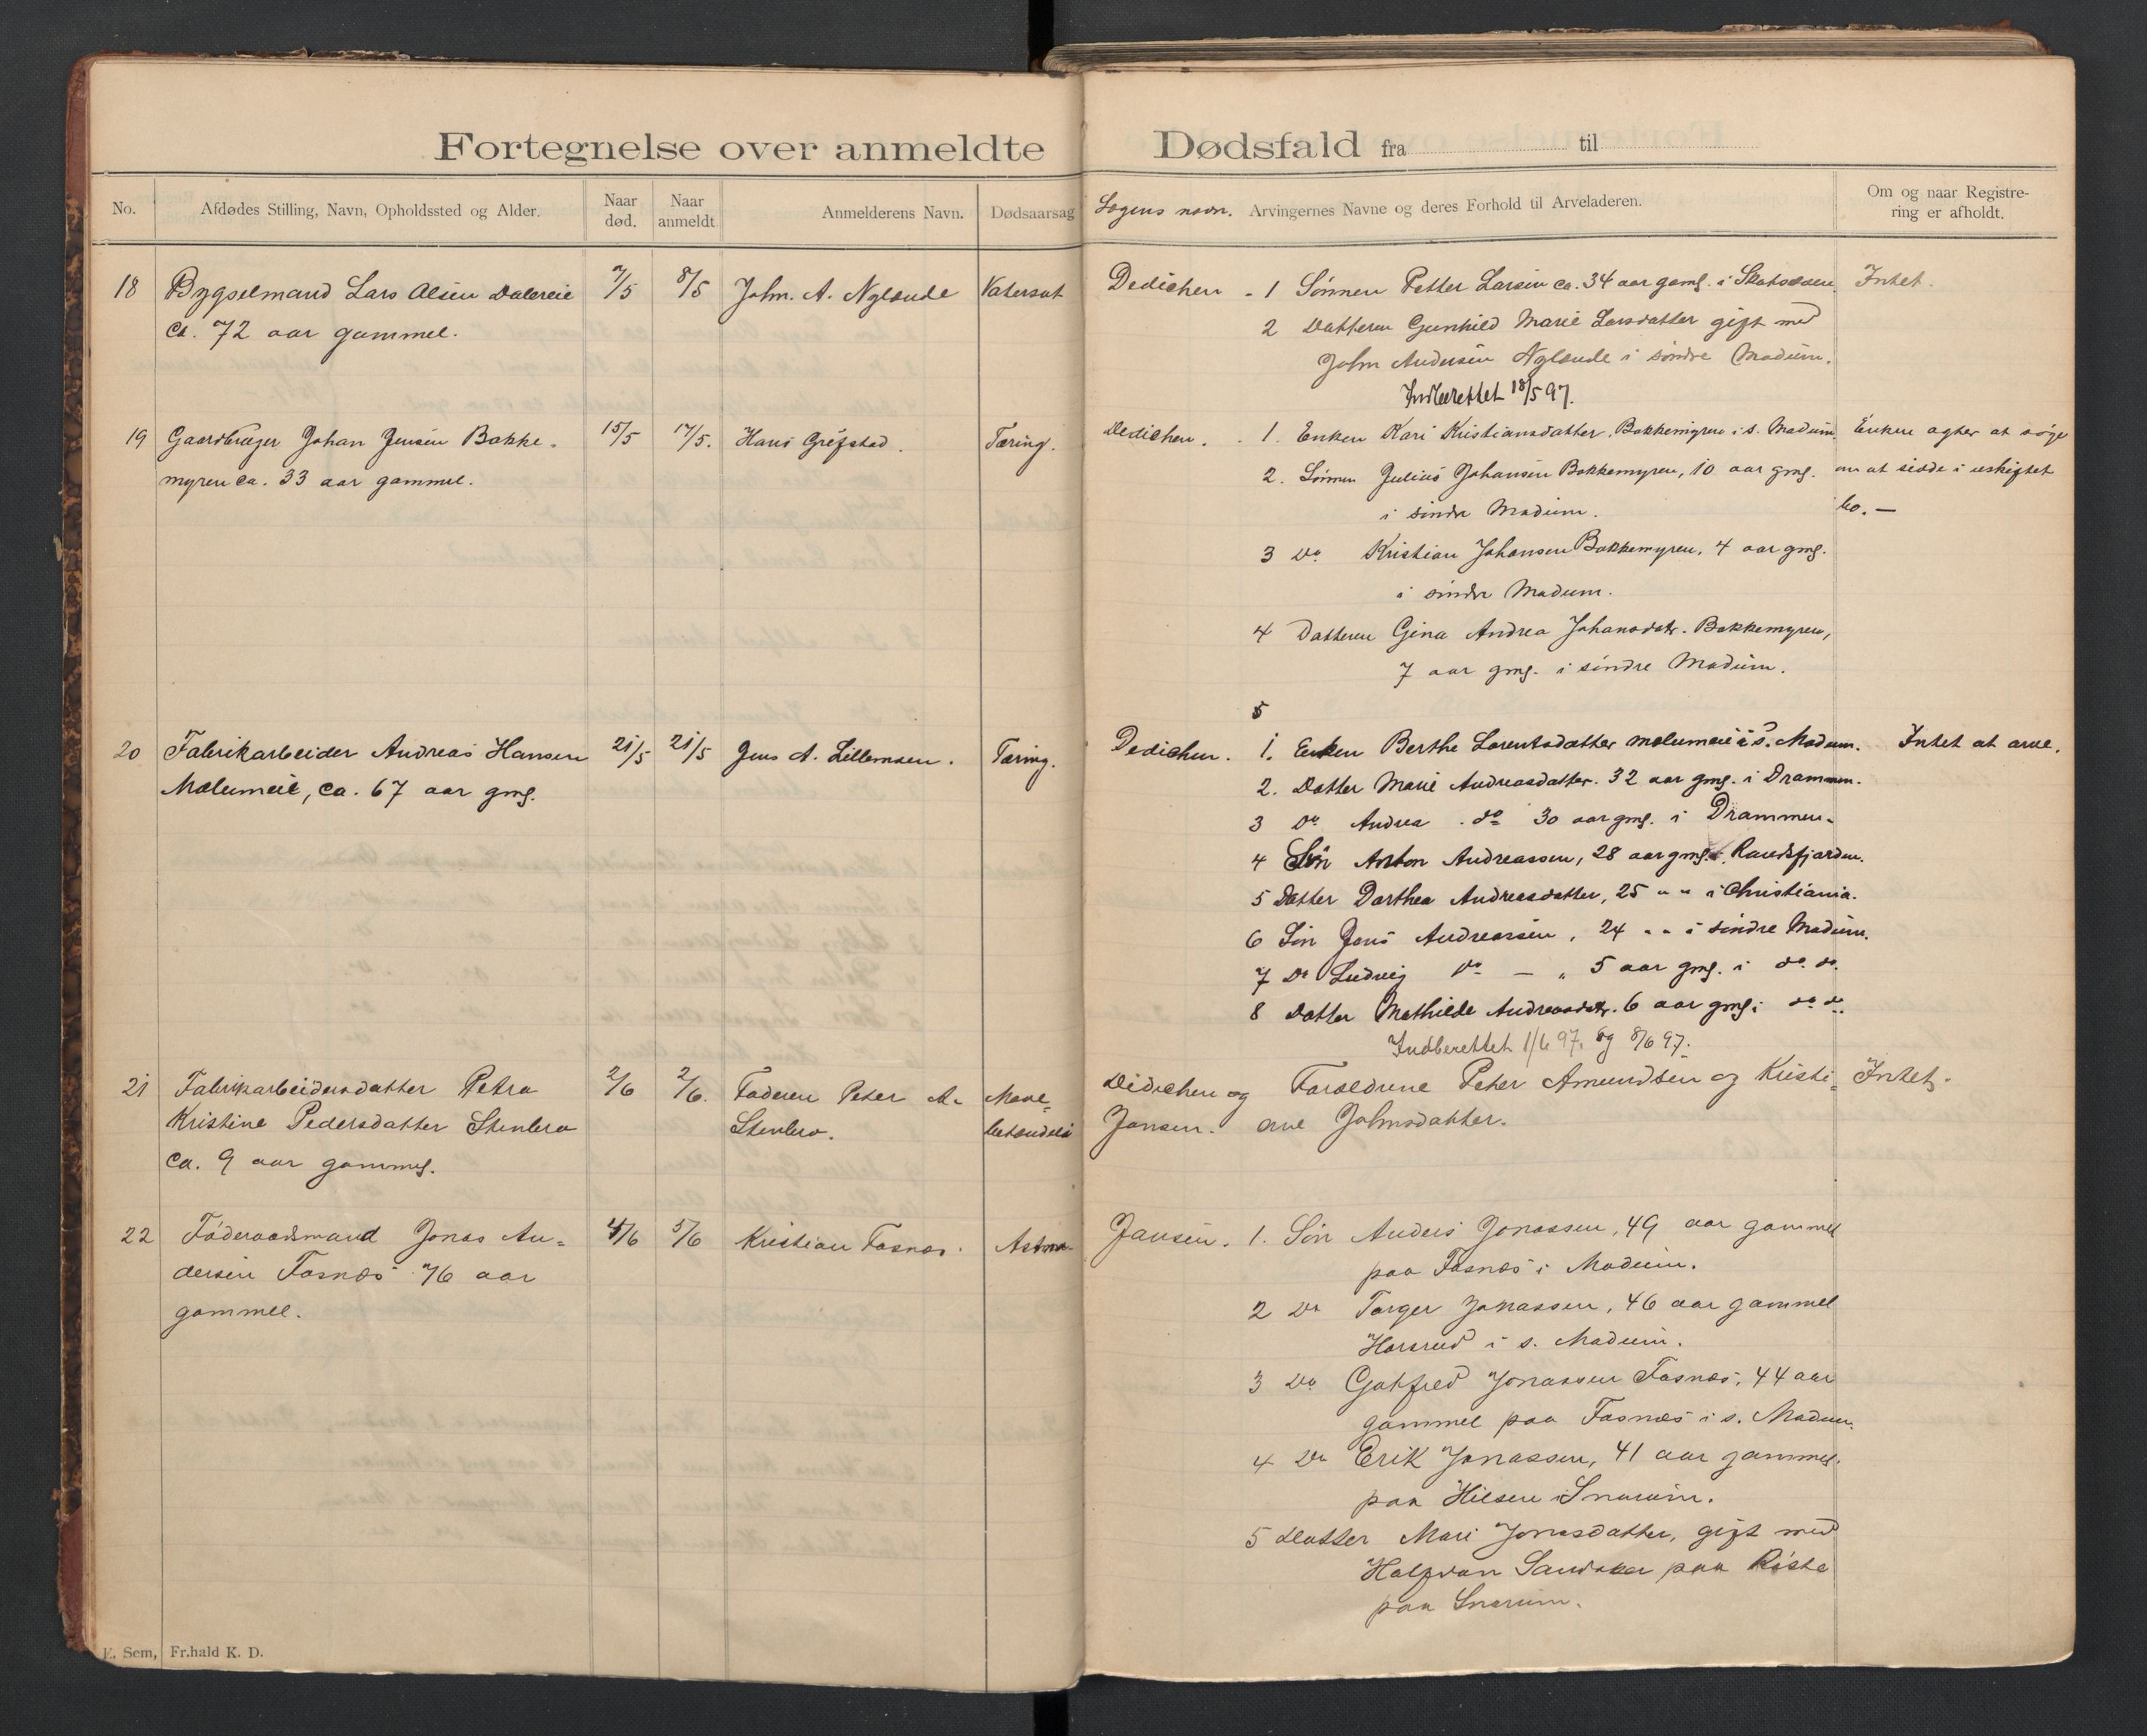 Fortegnelse over anmeldte Dødsfald fra til
No. Afdødes Stilling, Navn, Opholdssted og Alder. Naar død. Naar anmeldt Anmelderens Navn. Dødsaarsag Lægens navn. Arvingernes Navne og deres Forhold til Arveladeren. Om og naar Registrering er afholdt.
18 Bygselmand Lars Olsen Dalereie 7/5 8/5 John. A. Nylænde Vatersot Dedichen - 1 Sønnen Petter Larsen ca. 34 aar gaml. i Intet.
ca. 72 aar gammel. 2 Datteren Gunhild Marie Larsdatter gift med
John Andersen Nylænde i søndre Modum.
Indberettet 18/5 97.
19 Gaardbruger Johan Jensen Bakke- 15/5 17/5. Hans Grefstad. Tæring. Dedichen. 1. Enken Kari Kristiansdatter, Bakkemyren i s. Modum. Enken agter at søge
myren ca. 33 aar gammel. 2. Sønnen Julius Johansen Bakkemyren, 10 aar gml. om at sidde i uskiftet
i søndre Modum. bo. —
3 Do Kristian Johansen Bakkemyren, 4 aar gml.
i søndre Modum.
4 Datteren Gina Andrea Johansdatr. Bakkemyren,
7 aar gml. i søndre Modum.
5
20 Fabrikarbeider Andreas Hansen 21/5 21/5 Jens A. Lillemoen. Tæring. Dedichen. 1. Enken Berthe Lorentsdatter Melumeie i S. Modum. Intet at arve.
Melumeie, ca. 67 aar gml. 2. Datter Marie Andreasdatter. 32 aar gml. i Drammen.
3 Do Andrea . do 30 aar gml. i Drammen.
4 Søn Anton Andreassen, 28 aar gml. i Randsfjorden.
5 Datter Dorthea Andreasdatter, 25 " " i Christiania.
6 Søn Jens Andreassen, 24 " " i søndre Modum.
7 Do Ludvig Do — " 5 aar gml. i do. do.
8 Datter Mathilde Andreasdatr. 6 aar gml. i do do.
Indberettet 1/6 97. og 8/6 97.
21 Fabrikarbeidersdatter Petra 2/6 2/6. Faderen Peter A. Mave- Dedichen og Forældrene Peter Amundsen og Kristi- Intet.
Kristine Pedersdatter Stenbro Stenbro. betændelse Jansen. ane Johnsdatter.
ca. 9 aar gammel.
22 Føderaadsmand Jonas An- 4/6 5/6 Kristian Fosnæs. Astma. Jansen. 1. Søn Anders Jonassen, 49 aar gammel
dersen Fosnæs 76 aar paa Fosnæs i Modum.
gammel. 2 Do Torger Jonassen, 46 aar gammel
Horsrud i s. Modum.
3 Do Gotfred Jonassen Fosnæs, 44 aar
gammel paa Fosnæs i s. Modum.
4 Do Erik Jonassen, 41 aar gammel.
paa Hilsen i Snarum.
5 Datter Mari Jonasdatter, gift med
Halfvan Sandaker paa Riste
paa Snarum.
E. Sem, Fr.hald K. D.